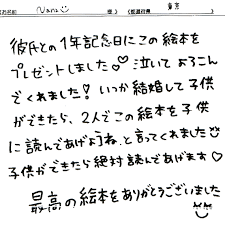 お名前 Nana 様 (都道府県 東京 )
彼氏との1年記念日にこの絵本を
プレゼントしました♡♡ 泣いてよろこん
でくれました! いつか結婚して子供
ができたら、2人でこの絵本を子供
に読んであげようね、と言ってくれました
子供ができたら絶対読んであげます♡
最高の絵本をありがとうございました